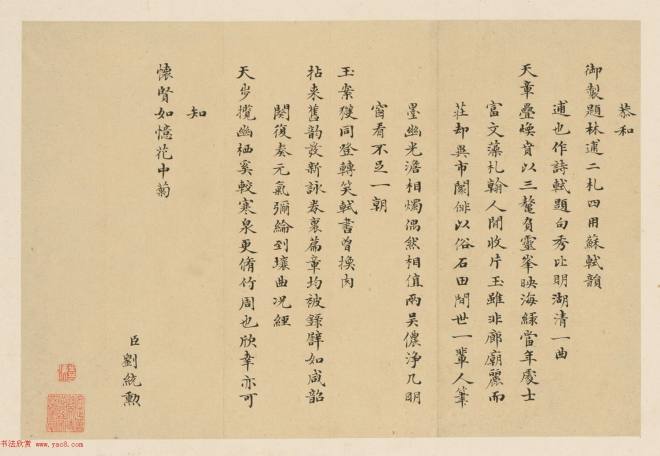 恭和
御製題林逋二札四用蘇軾韻
逋也作詩軾題句秀比明湖清一曲
天章疊煥賁以三鼇負靈峯映海綠當年處士
富文藻札翰人間收片玉雖非廊廟麗而
莊却異市闤俳以俗石田間世一輩人筆
墨幽光澹相燭偶然相值兩吳儂淨几明
窗看不足一朝
玉案獲同登轉笑軾書曾換肉
拈来舊韵發新詠卷裏篇章均被錄譬如咸韶
闋復奏元氣彌綸到壤曲况經
天步攬幽栖奚較寒泉更脩竹周也欣幸亦可
知
懷賢如憶花中菊
臣劉統勲
书法欣赏 www.yac8.com